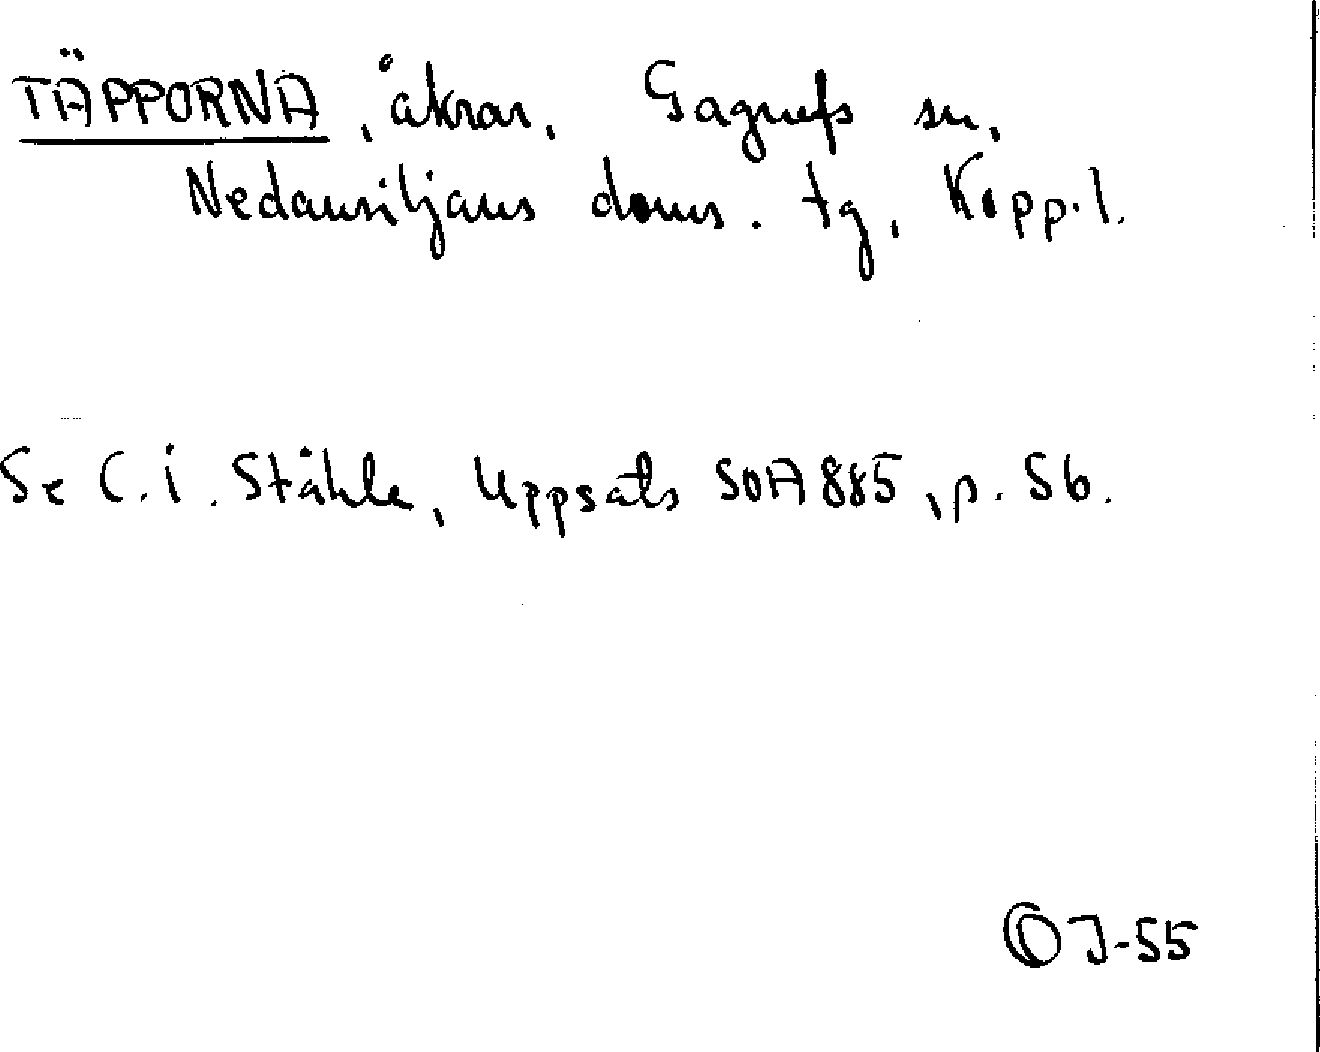 TÄPPORNA, åkrar, Gagnefs sn,
Nedansiljans doms. tg, Kopp.l.
Se C.I. Ståhle, Uppsats SOA 885, p. 56.
OJ-55